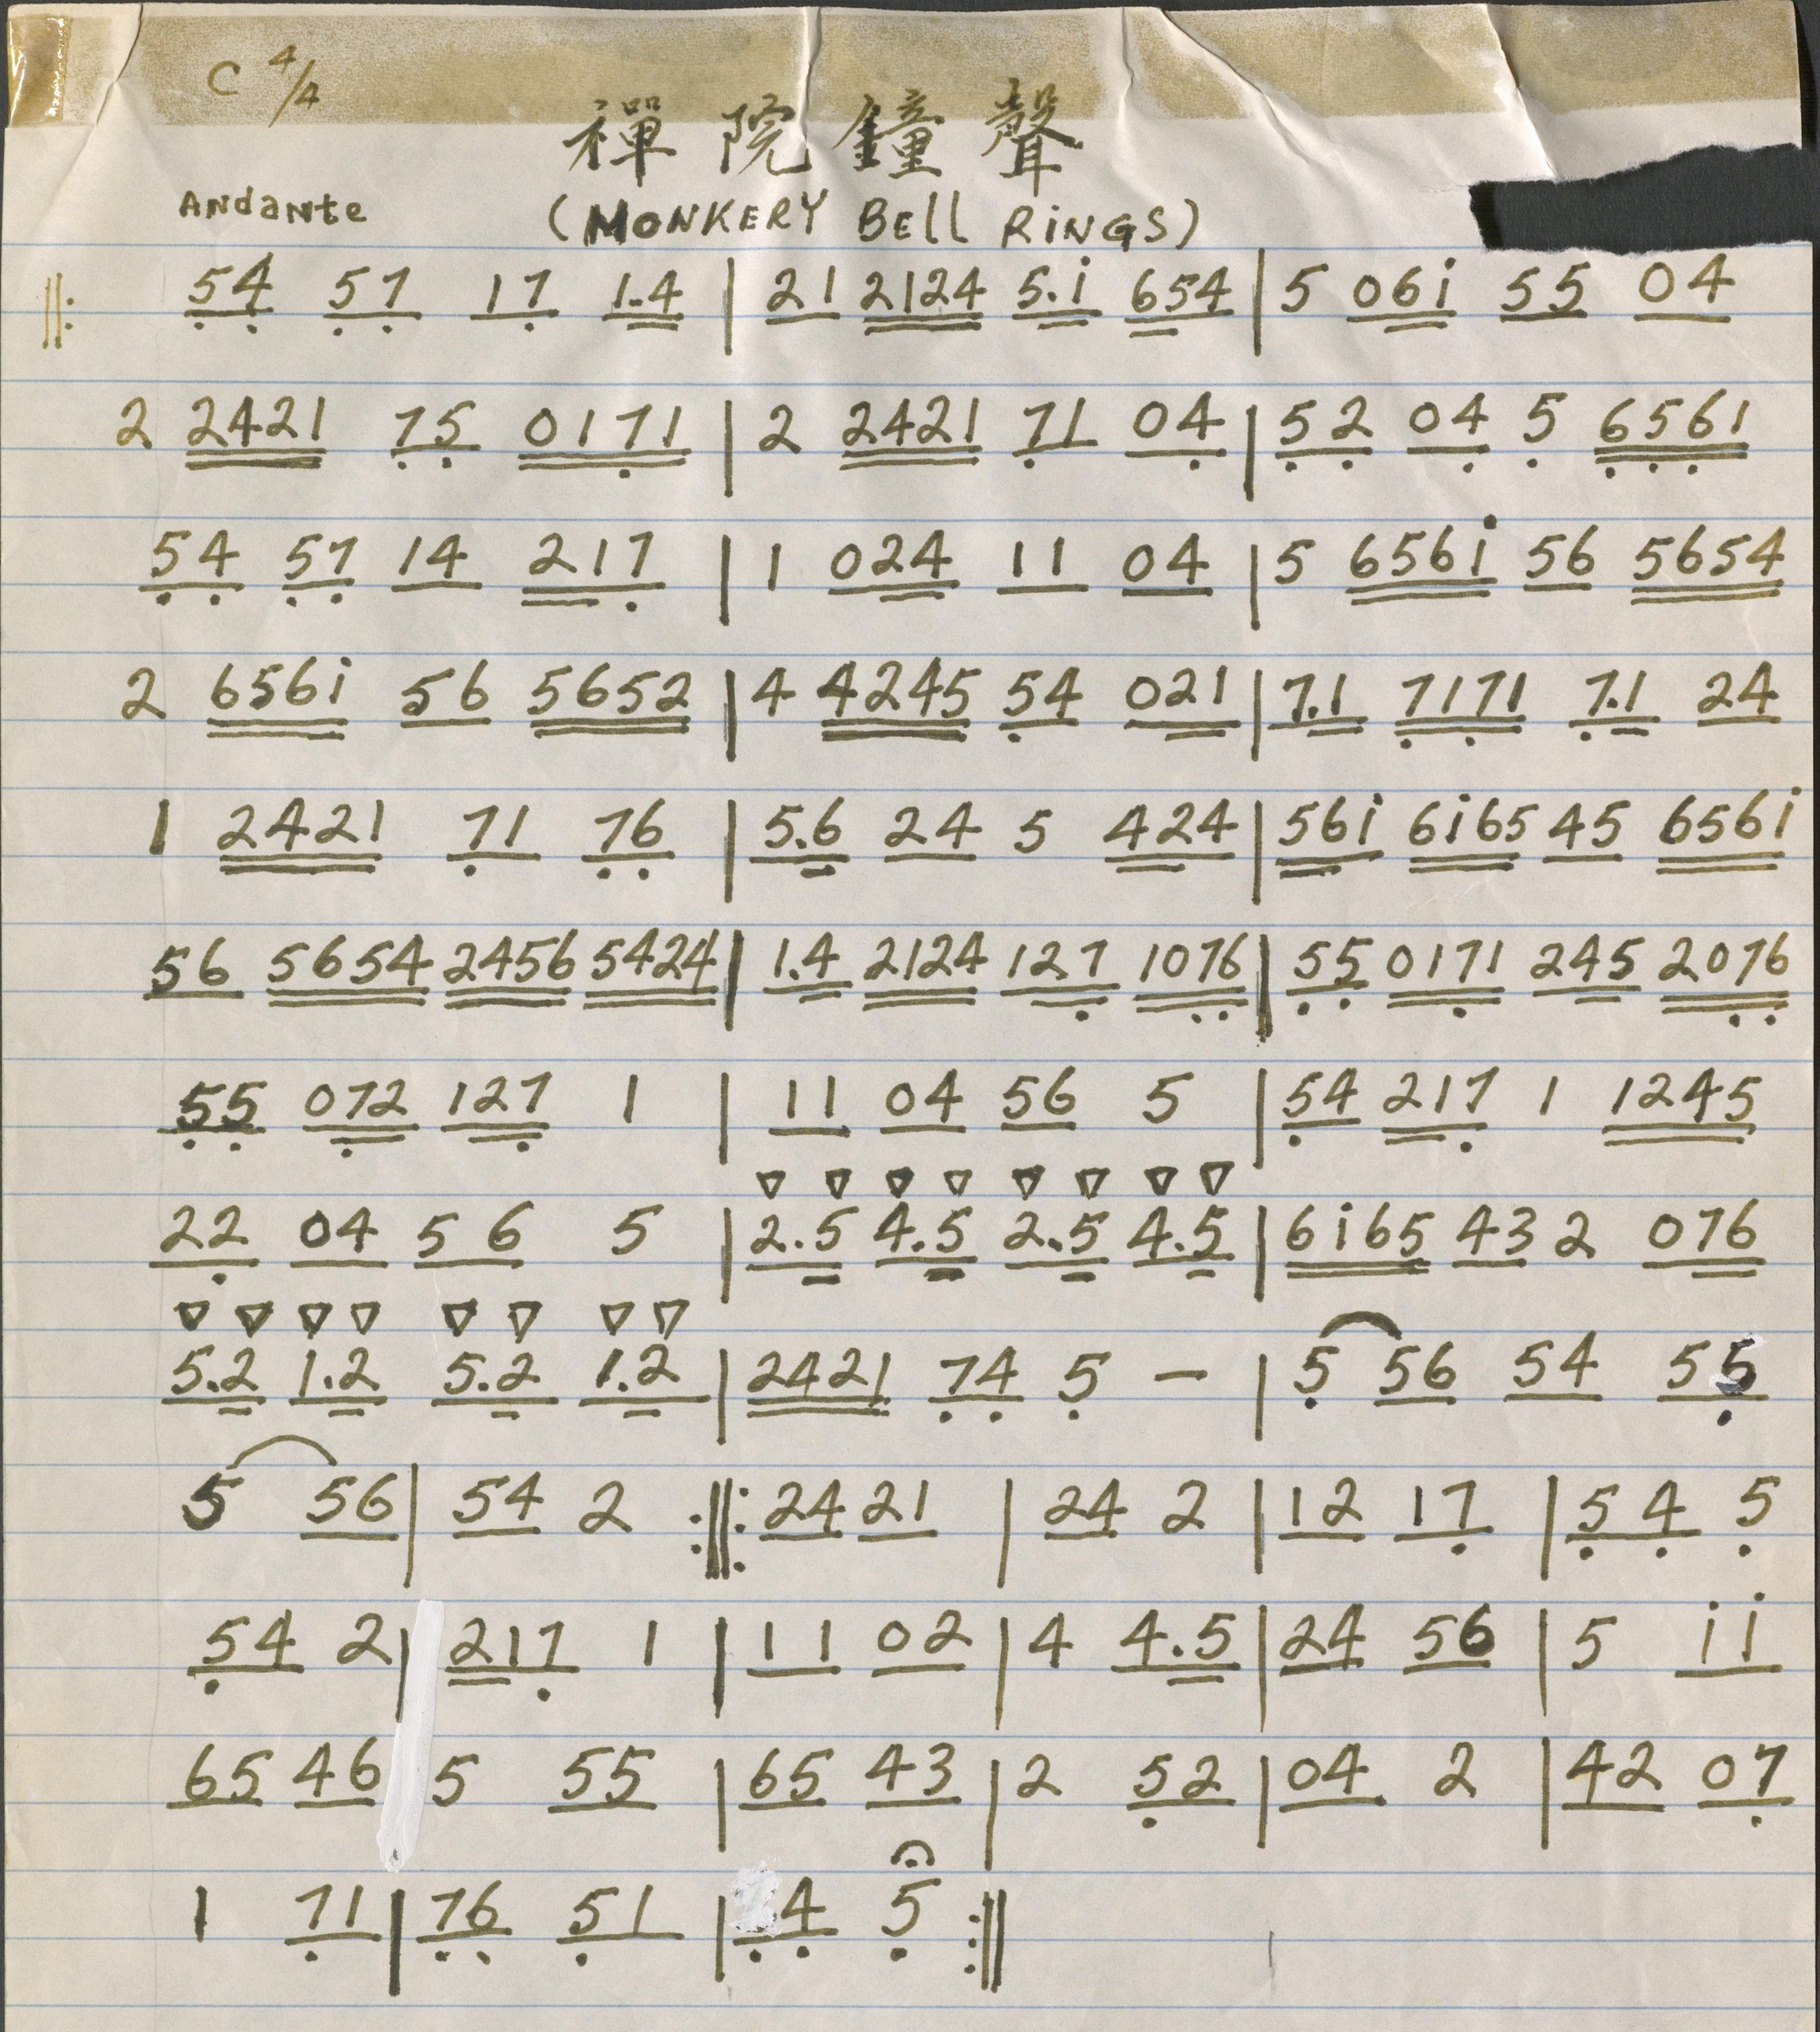 C 4/4
禪院鐘聲
Andante
(MONKERY BELL RINGS)
54 57 17 1.4 | 21 2124 5.i 654 | 5 06i 55 04
2 2421 75 0171 | 2 2421 71 04 | 52 04 5 6561
54 57 14 217 | 1 024 11 04 | 5 656i 56 5654
2 656i 56 5652 | 4 4245 54 021 | 7.1 7171 7.1 24
1 2421 71 76 | 5.6 24 5 424 | 56i 6i65 45 656i
56 5654 2456 5424 | 1.4 2124 127 1076 | 55 0171 245 2076
55 072 127 1 | 11 04 56 5 | 54 217 1 1245
22 04 56 5 | 2.5 4.5 2.5 4.5 | 6i65 43 2 076
5.2 1.2 5.2 1.2 | 2421 74 5 – | 5 56 54 55
5 56 | 54 2 :||: 24 21 | 24 2 | 12 17 | 54 5
54 2 | 217 1 | 11 02 | 4 4.5 | 24 56 | 5 ii
65 46 5 55 | 65 43 | 2 52 | 04 2 | 42 07
1 71 | 76 51 | 4 5 :||